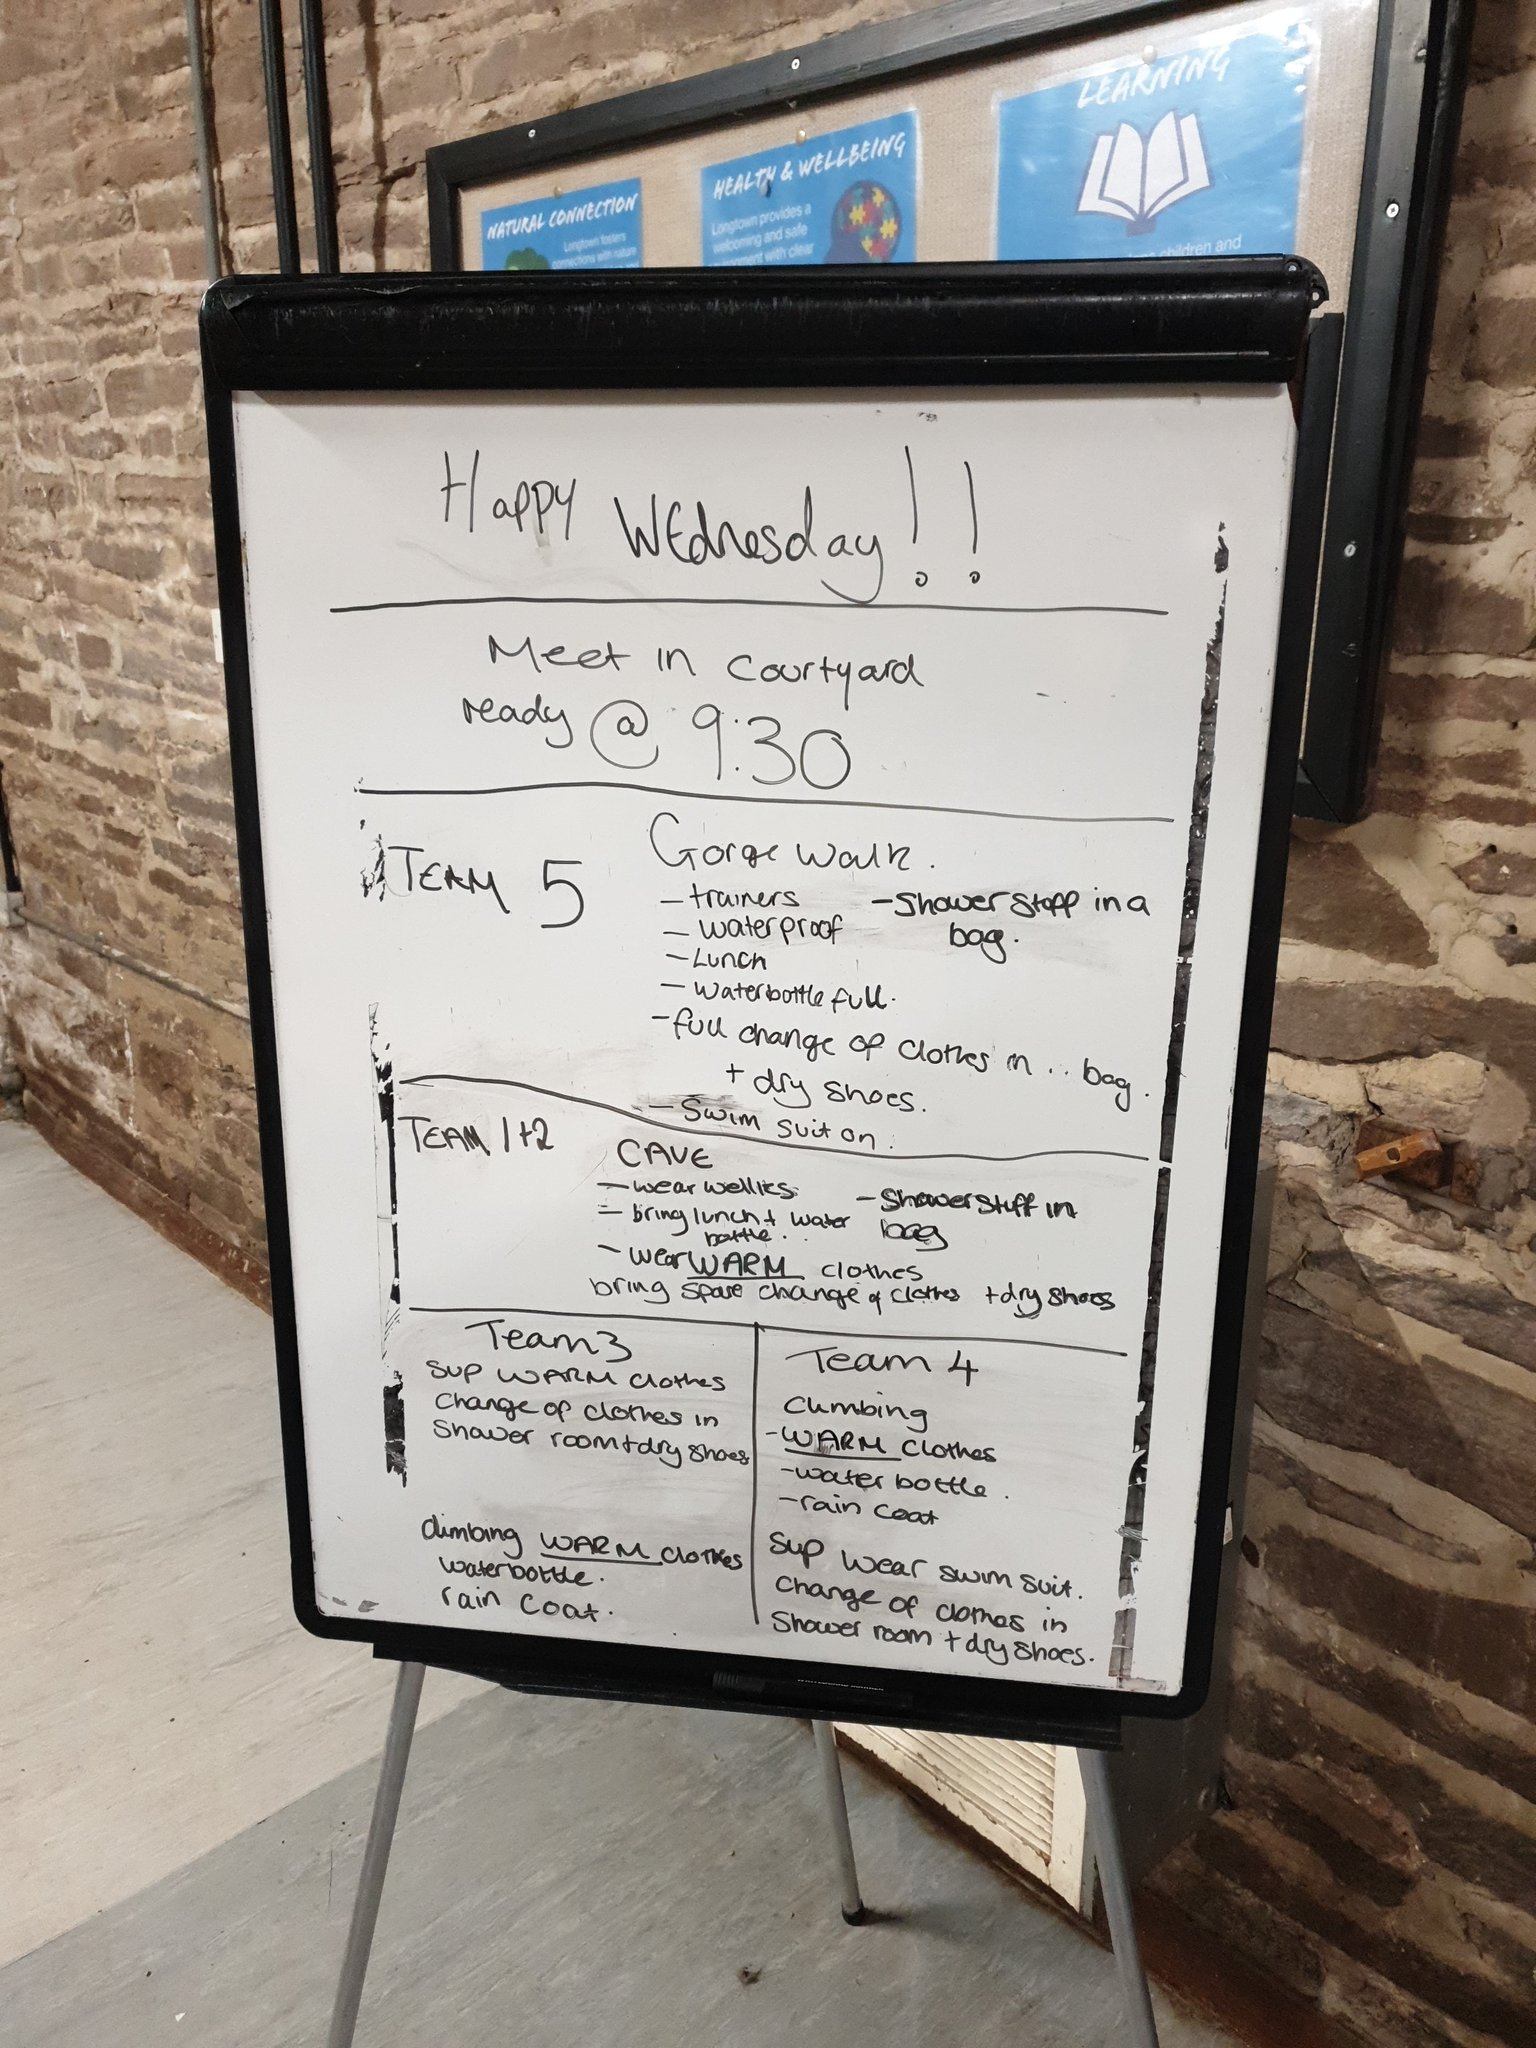 LEARNING
HEALTH & WELLBEING
NATURAL CONNECTION
Longtown provides a
welcoming and safe
with clear
Longtown fosters
connections with nature
children and
Happy WEdnesday!!
Meet in courtyard
ready @ 9:30
TEAM 5
Gorge walk.
- trainers
- waterproof
- Lunch
- waterbottle full.
- Shower stuff in a
bag.
- full change of clothes in .. bag.
+ dry shoes.
- Swim suit on.
TEAM 1+2
CAVE
- wear wellies
- bring lunch + water
bottle.
- Shower stuff in
bag
- wear WARM clothes
bring spare change of clothes + dry shoes
Team 3
Sup WARM clothes
Change of clothes in
Shower room + dry shoes
climbing WARM clothes
waterbottle.
rain coat.
Team 4
climbing
- WARM clothes
- water bottle.
- rain coat
Sup wear swim suit.
Change of clothes in
Shower room + dry shoes.